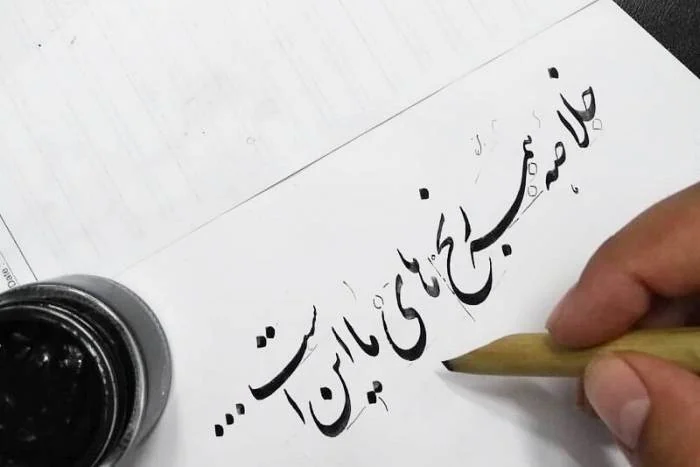 خلاصه همه رنج های ما این است...
Date